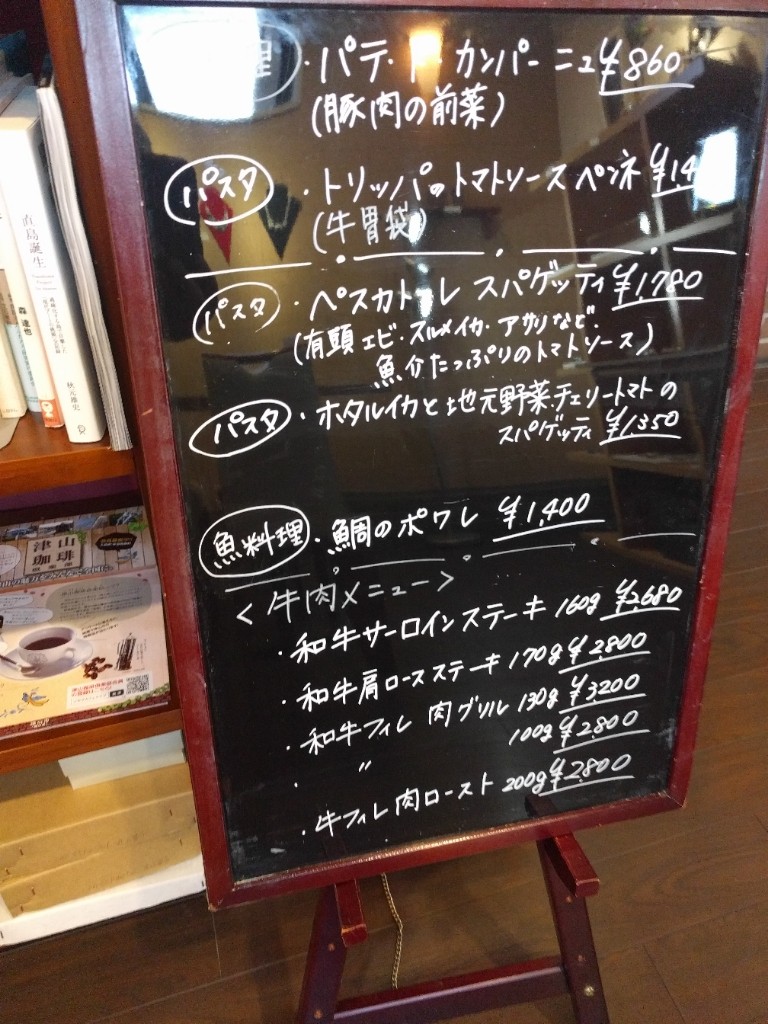 理 ・パテ・ド・カンパーニュ ¥860
(豚肉の前菜)
パスタ ・トリッパのトマトソース ペンネ ¥14
(牛胃袋)
パスタ ・ペスカトーレ スパゲッティ ¥1,780
(有頭エビ・スルメイカ・アサリなど・
魚介たっぷりのトマトソース)
パスタ ・ホタルイカと地元野菜チェリートマトの
スパゲッティ ¥1,350
魚料理 ・鯛のポワレ ¥1,400
<牛肉メニュー>
・和牛サーロインステーキ 160g ¥2,680
・和牛肩ロースステーキ 170g ¥2,800
・和牛フィレ肉グリル 130g ¥3,200
・ 〃 100g ¥2,800
・牛フィレ肉ロースト 200g ¥2,800
直島誕生
秋元雄史
森達也
津山
珈琲